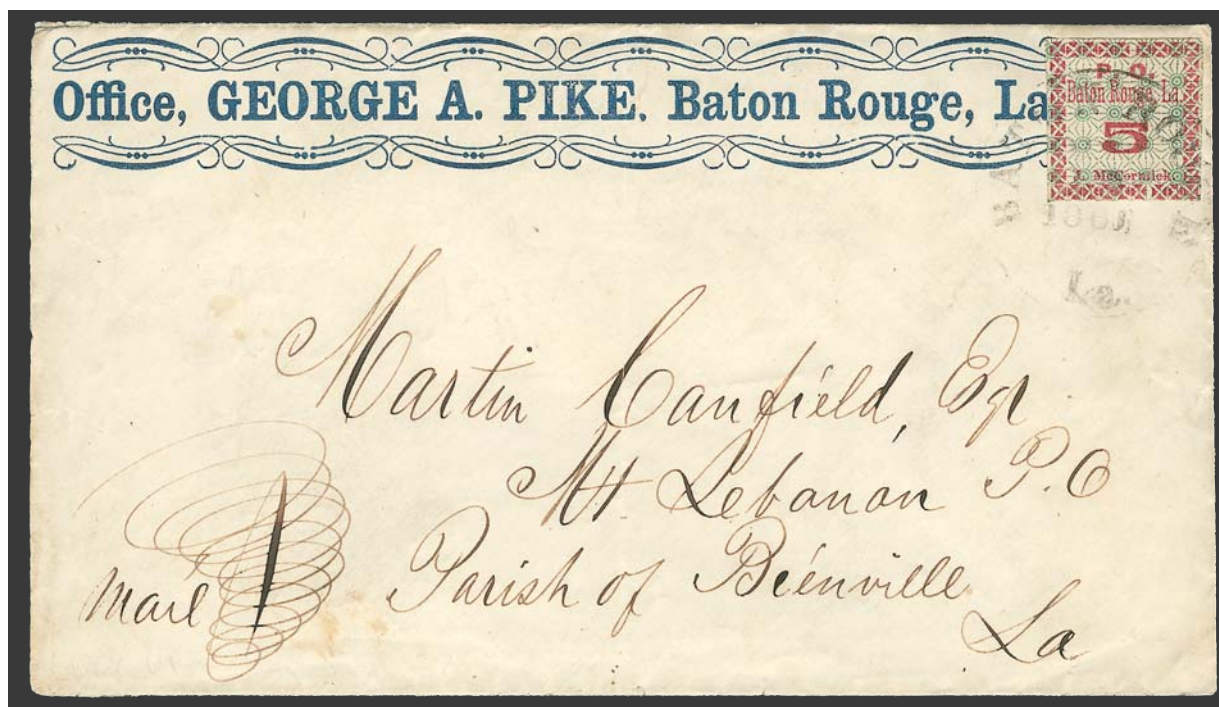 Office, GEORGE A. PIKE. Baton Rouge, La
P. O.
Baton Rouge, La.
5
J. McCormick
1861
La.
Martin Canfield, Esqr
Mt Lebanon P.O
Parish of Bienville
La
Mail